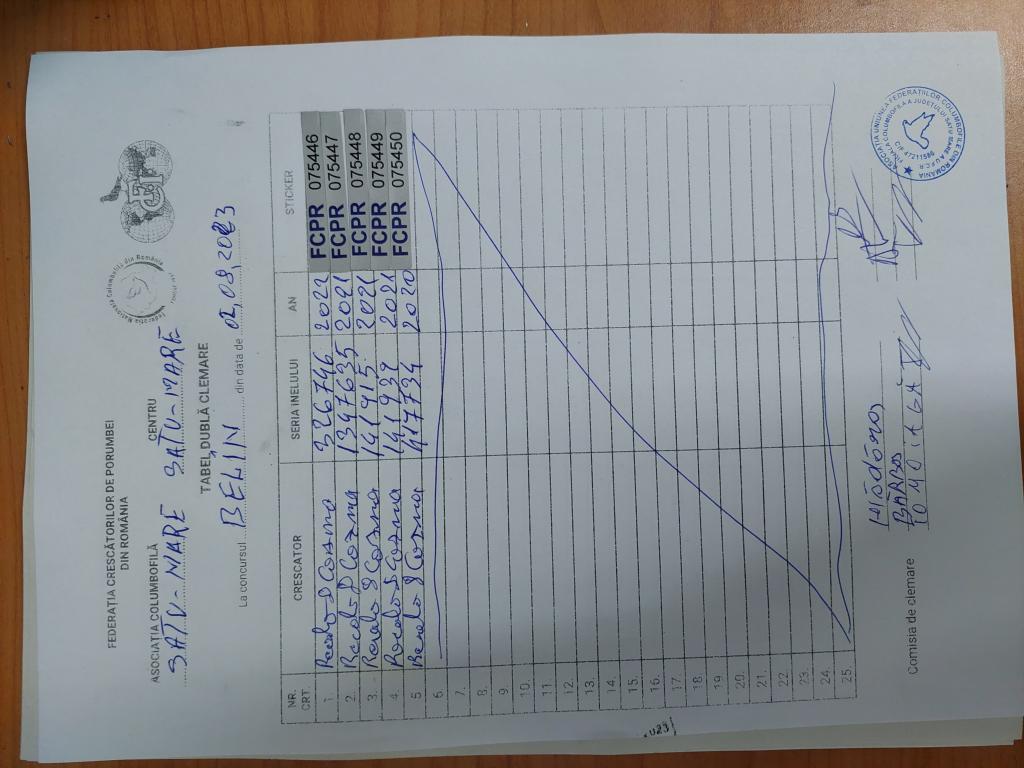 FEDERAȚIA CRESCĂTORILOR DE PORUMBEI
DIN ROMÂNIA
Federația Națională Columbofilă din România
ASOCIAȚIA COLUMBOFILĂ CENTRU
SATU-MARE SATU-MARE
TABEL DUBLĂ CLEMARE
La concursul BELIN din data de 02,09,2023
NR. CRT. CRESCATOR SERIA INELULUI AN STICKER
1. 326746 2022 FCPR 075446
2. 1347635 2021 FCPR 075447
3. 141915 2021 FCPR 075448
4. 141939 2021 FCPR 075449
5 417734 2020 FCPR 075450
6.
7.
8.
9.
10.
11.
12.
13.
14.
15.
16.
17.
18.
19
20.
21.
22.
23.
24.
25.
Comisia de clemare
BARBOS
ASOCIAȚIA UNIUNEA FEDERAȚIILOR COLUMBOFILE DIN ROMANIA
FILIALA COLUMBOFILA A JUDEȚULUI SATU MARE A.F.C.R.
CIF 47211586